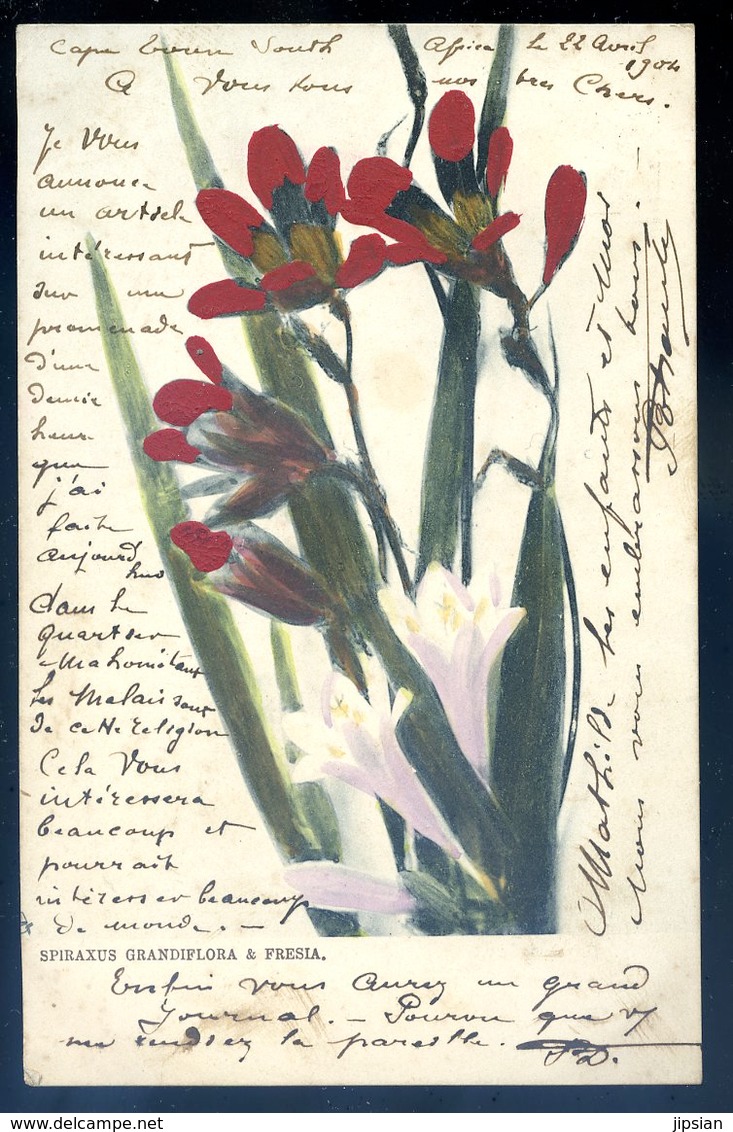 Cape Town South Africa le 22 Avril
1904
A Vous tous nos très Chers.
Je Vous
annonce
un article
intéressant
sur une
promenade
d'une
demie
heure
que
j'ai
faite
aujourd
huo
dans le
quartier
Mahométans
les Malais sont
de cette religion
Cela Vous
intéressera
beaucoup et
pourrait
intéresser beaucoup
de monde. —
Mathilde les enfants et Moi
Nous vous embrassons tous. —
SPIRAXUS GRANDIFLORA & FRESIA.
Enfin vous aurez un grand
Journal. — Pourvu que
me rendsez la pareille.
jipsian